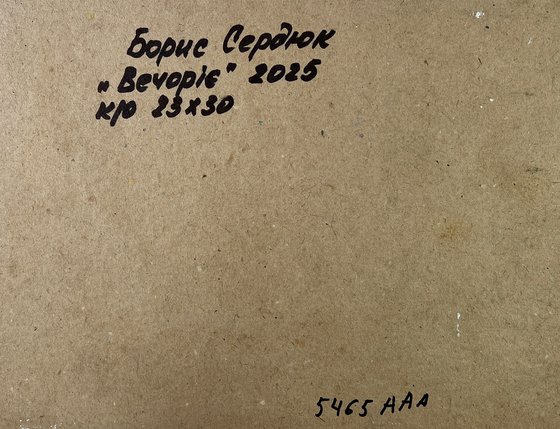 Борис Сердюк
„Вечоріє" 2025
к/о 23х30
5465 ААА